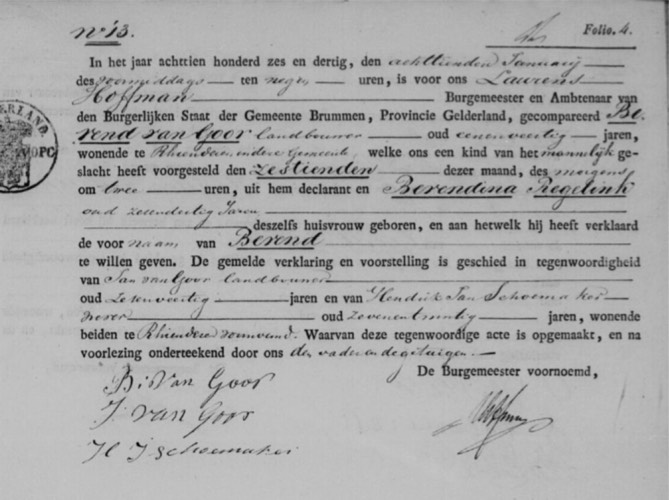 No 13.
Folio. 4.
In het jaar achttien honderd zes en dertig, den achttienden January
des voormiddags ten negen uren, is voor ons Laurens
Hoffman Burgemeester en Ambtenaar van
den Burgerlijken Staat der Gemeente Brummen, Provincie Gelderland, gecompareerd Be-
rend van Goor landbouwer oud eenenveertig jaren,
wonende te Rhienderen, endere Gemeente, welke ons een kind van het mannelijk ge-
slacht heeft voorgesteld den zestienden dezer maand, des morgens
om twee uren, uit hem declarant en Berendina Regelink
oud zesendertig Jaren
deszelfs huisvrouw geboren, en aan hetwelk hij heeft verklaard
de voor naam van Berend
te willen geven. De gemelde verklaring en voorstelling is geschied in tegenwoordigheid
van Jan van Goor landbouwer
oud zesenveertig jaren en van Hendrik Jan Schoemaker
oud zevenentwintig jaren, wonende
beiden te Rhienderen. Waarvan deze tegenwoordige acte is opgemaakt, en na
voorlezing onderteekend door ons den vader en de getuigen.
De Burgemeester voornoemd,
B: Van Goor
J. van Goor
H J Schoemaker